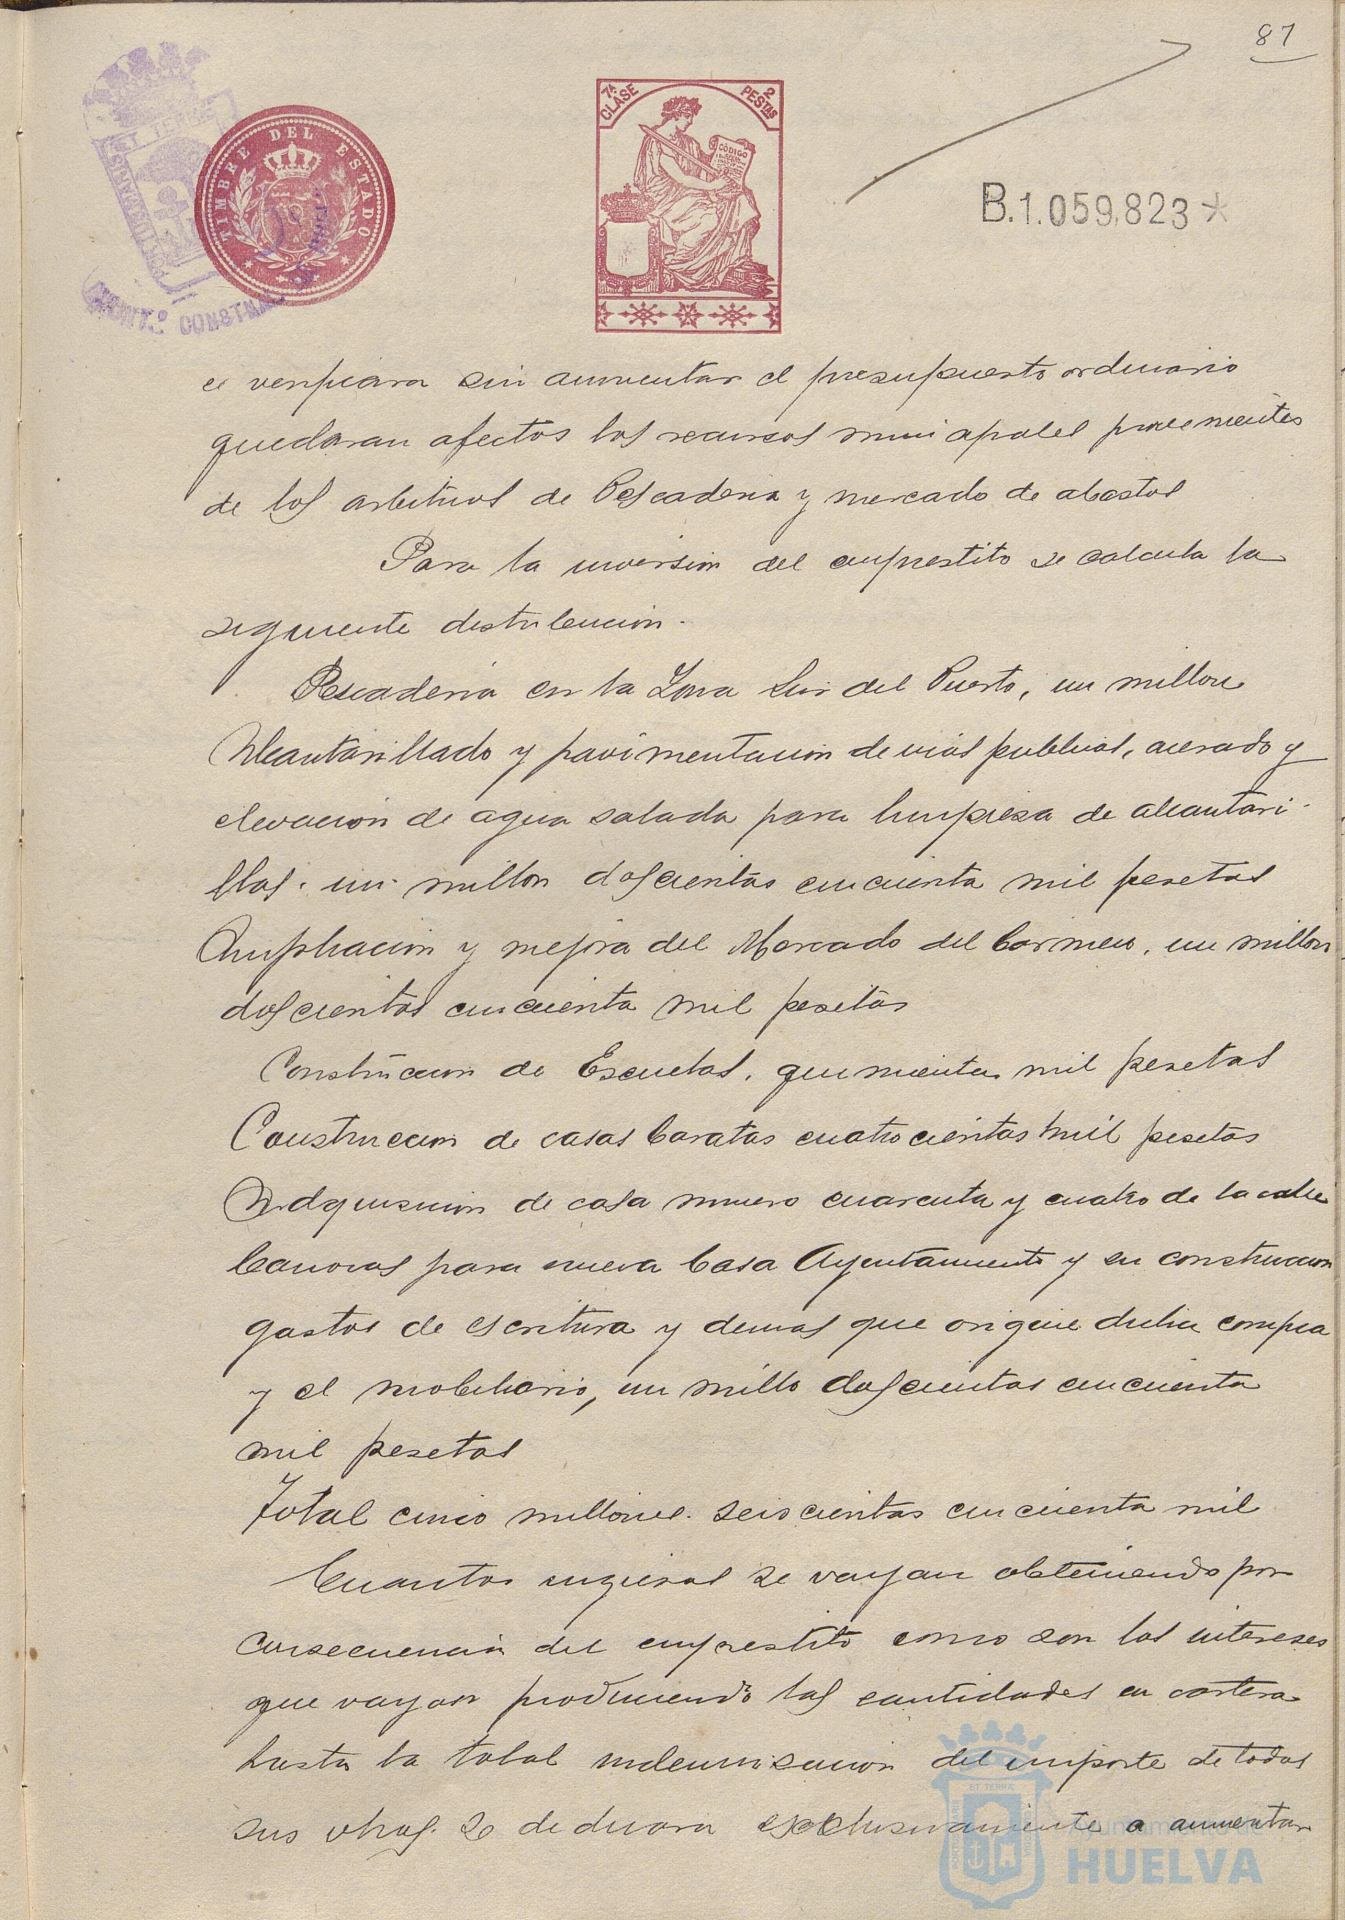 81
7ª CLASE
2 PESTAS
TIMBRE DEL ESTADO
CÓDIGO
B.1.059,823*
CONSTNAL
se verificara sin aumentar el presupuesto ordinario
quedaran afectos los recursos municipales provenientes
de los arbitrios de Pescaderia y mercado de abastos
Para la inversion del emprestito se calcula la
siguiente distribucion.
Pescaderia en la Zona Sur del Puerto, un millon
Alcantarillado y pavimentacion de vias publicas, acerado y
elevación de agua salada para limpieza de alcantari-
llas. un millon doscientas cincuenta mil pesetas
Ampliacion y mejora del Mercado del Carmen, un millon
doscientas cincuenta mil pesetas
Construccion de Escuelas, quinientas mil pesetas
Construccion de casas baratas cuatrocientas mil pesetas
Adquisicion de casa numero cuarenta y cuatro de la calle
Canovas para nueva Casa Ayuntamiento y su construccion
gastos de escritura y demas que origine dicha compra
y el mobiliario, un millo doscientas cincuenta
mil pesetas
Total cinco millones. seiscientas cincuenta mil
Cuantos ingresos se vayan obteniendo por
consecuencia del emprestito como son los intereses
que vayan produciendo las cantidades en cartera
hasta la total indemnisacion del importe de todas
sus obras. se dedicara exclusivamente a aumentar
Ayuntamiento de
HUELVA